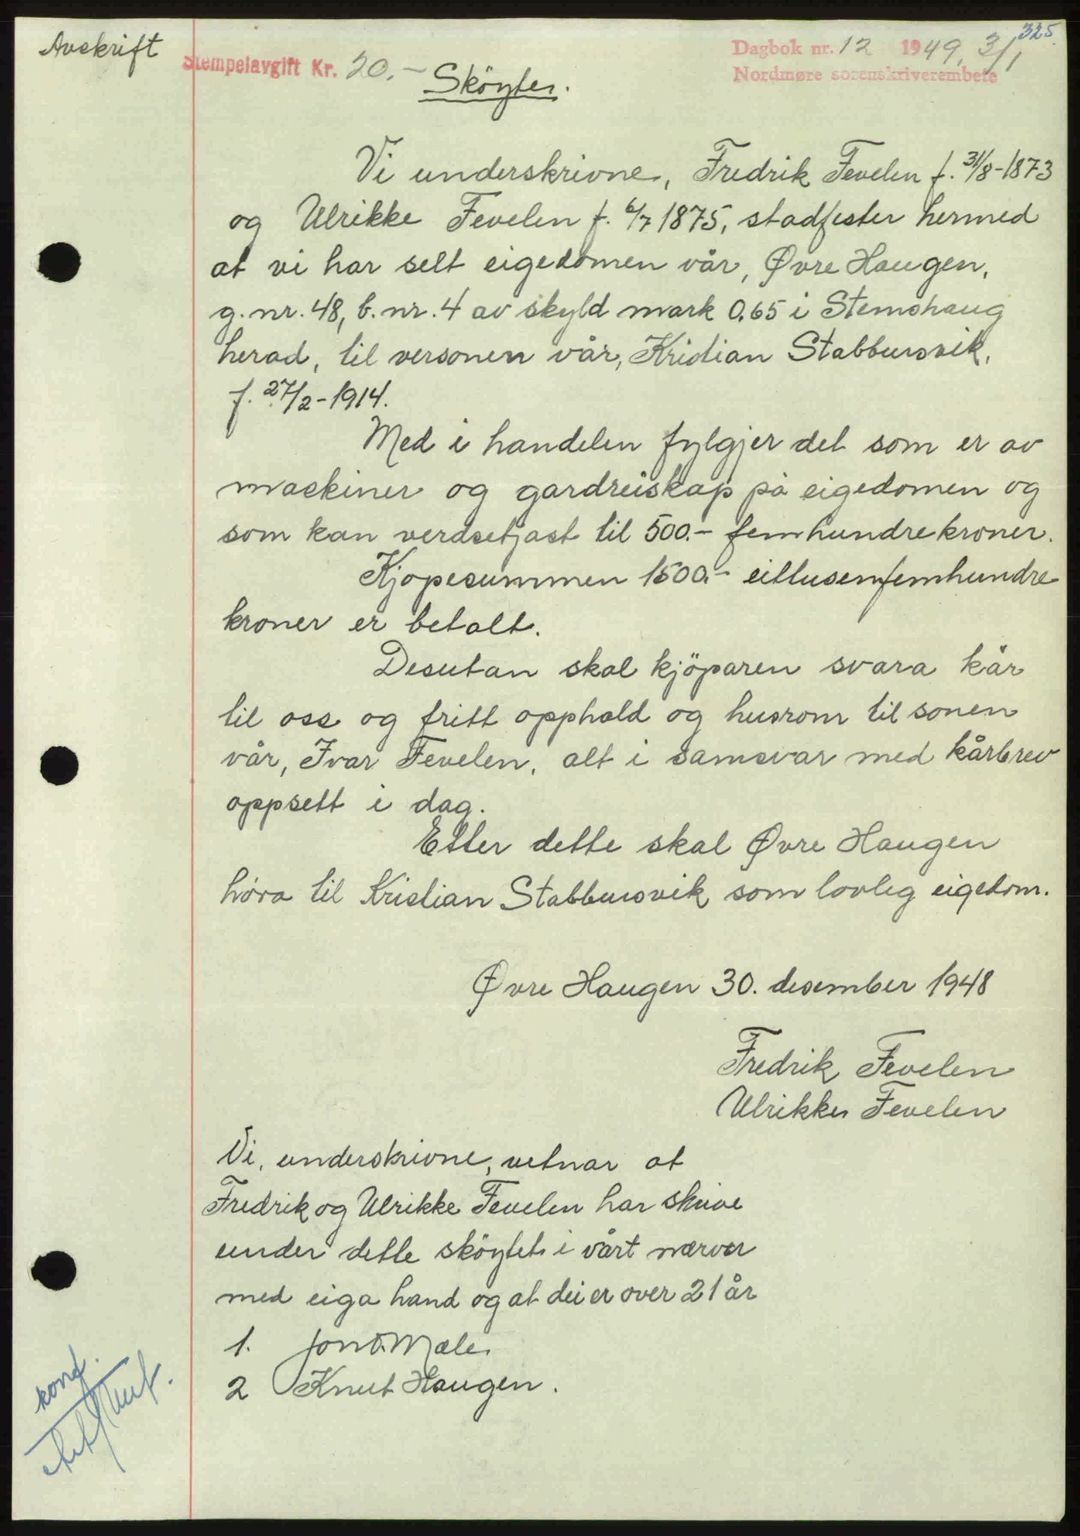 325
Avskrift
Stempelavgift Kr. 20.-
Dagbok nr. 12 1949, 3/1
Nordmøre sorenskriverembete
Sköyte.
Vi underskrivne, Fredrik Fevelen f. 31/8-1873
og Ulrikke Fevelen f. 6/7 1875, stadfester hermed
at vi har selt eigedomen vår, Øvre Haugen,
g.nr. 48, b.nr. 4 av skyld mark 0,65 i Stemshaug
herad, til versonen vår, Kristian Stabbursvik,
f. 27/2-1914.
Med i handelen fylgjer det som er av
maskiner og gardreiskap på eigedomen og
som kan verdsetjast til 500.- femhundrekroner.
Kjøpesummen 1500.- eittusenfemhundre
kroner er betalt.
Desutan skal kjöparen svara kår
til oss og fritt opphald og husrom til sonen
vår, Ivar Fevelen, alt i samsvar med kårbrev
oppsett i dag.
Etter dette skal Øvre Haugen
høra til Kristian Stabbursvik som lovleg eigedom.
Øvre Haugen 30. desember 1948
Fredrik Fevelen
Ulrikke Fevelen
Vi, underskrivne, vetnar at
Fredrik og Ulrikke Fevelen har skrive
under dette sköytet i vårt nærver
med eiga hand og at dei er over 21 år
1. Jon Mæle
2 Knut Haugen.
konf.